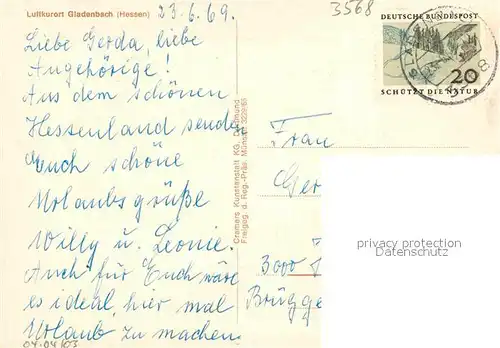 Luftkurort Gladenbach (Hessen)
23.6.69.
Liebe Gerda, liebe
Angehörige!
Aus dem schönen
Hessenland sendet
Euch schöne
Urlaubsgrüße
Willy u. Leonie.
Auch für Euch wäre
es ideal, hier mal
Urlaub zu machen
04.04/03
Cramers Kunstanstalt KG, Dortmund
Freigeg. d. Reg.-Präs. Münster
3568
DEUTSCHE BUNDESPOST
20
SCHÜTZT DIE NATUR
Frau
Ger
3000
Brügge
privacy protection
Datenschutz